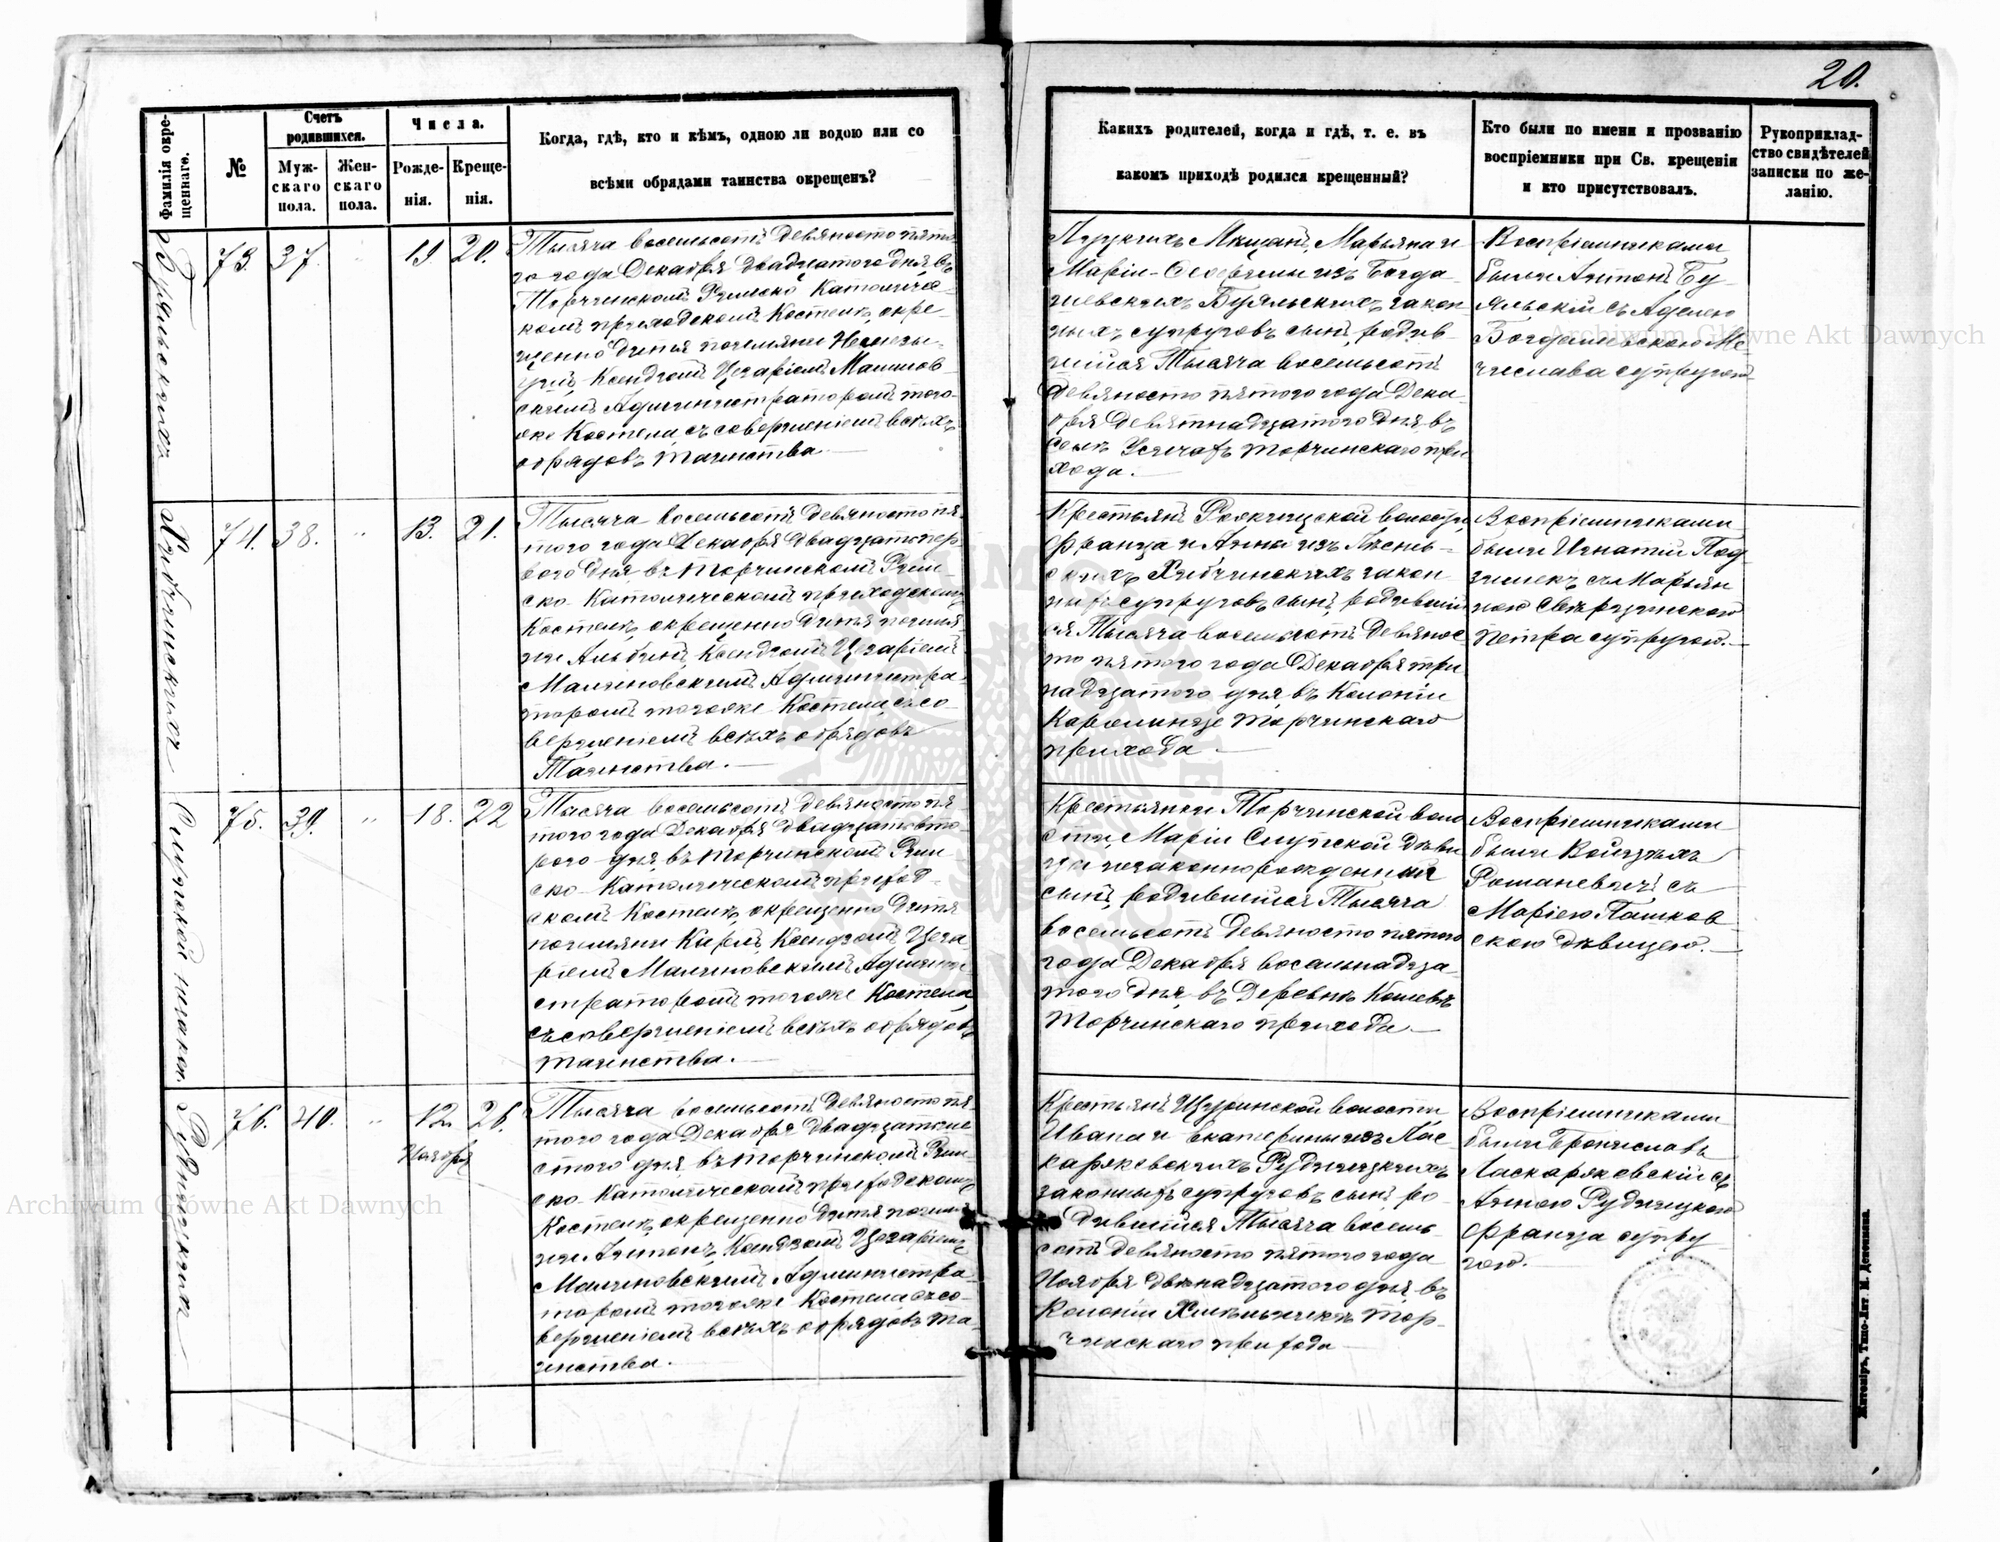 20.
Фамилія окрещеннаго.
№
Счетъ родившихся.
Мужскаго пола.
Женскаго пола.
Числа.
Рожденія.
Крещенія.
Когда, гдѣ, кто и кѣмъ, одною ли водою или со
всѣми обрядами таинства окрещенъ?
Какихъ родителей, когда и гдѣ, т. е. въ
какомъ приходѣ родился крещенный?
Кто были по имени и прозванію
воспріемники при Св. крещеніи
и кто присутствовалъ.
Рукоприклад-
ство свидѣтелей
записки по же-
ланію.
Буяльскихъ
73. 37. 19 20.
Тысяча восемьсотъ девяносто пята-
го года Декабря двадцатого дня въ
Торчинскомъ Римско Католичес-
комъ приходскомъ Костелѣ, окре-
щенно дитя именемъ
Ксендзомъ Цезаріемъ Малинов-
скимъ Администраторомъ того-
же Костела, съ совершеніемъ всѣхъ
обрядовъ таинства.
Луцкихъ Мѣщанъ, Марьяна и
Маріи из Богда-
шевскихъ Буяльскихъ закон-
ныхъ супруговъ сынъ, родив-
шійся Тысяча восемьсотъ
девяносто пятого года Декаб-
ря Девятнадцатого дня въ
Торчинскаго при
хода.
Воспріемниками
были Антонъ Бу
яльскій съ Аделею
Богдашевскою Ме
числава супругою
74. 38. 13. 21.
Тысяча восемьсотъ девяносто пя-
того года Декабря двадцать пер-
вого дня въ Торчинскомъ Рим-
ско Католическомъ приходскомъ
Костелѣ, окрещенно дитя имен-
ни Альбинъ, Ксендзомъ Цезаріемъ
Малиновскимъ Администра-
торомъ тогоже Костела, съ со-
вершеніемъ всѣхъ обрядовъ
Таинства.
Крестьянъ Рожищской волости,
Франца и Анны изъ
закон-
ныхъ супруговъ сынъ, родивший
ся Тысяча восемьсотъ девянос-
то пятого года Декабря три
надцатого дня, въ Колоніи
Торчинскаго
прихода
Воспріемниками
были Игнатій Под
съ Марьян
ною
Петра супругою.
Слуцкой незакон.
75. 39. 18. 22
Тысяча восемьсотъ девяносто пя
того года Декабря двадцать вто-
рого дня, въ Торчинскомъ Рим-
ско Католическомъ приход-
скомъ Костелѣ, окрещенно дитя
именемъ Карлъ, Ксендзомъ Цеза
ріемъ Малиновскимъ Админи-
страторомъ тогоже Костела,
съ совершеніемъ всѣхъ обрядовъ
таинства.
Крестьянки Торчинской воло
сти, Маріи Слуцкой дѣви
цы незаконнорожденный
сынъ, родившійся Тысяча
восемьсотъ Девяносто пятого
года Декабря восемьнадца-
того дня, въ Деревнѣ Кошевѣ
Торчинскаго прихода.
Воспріемниками
были Войцѣхъ
Романевичъ съ
Маріею Пашков
скою дѣвицею.
Рудницкихъ
76. 40. 12 26.
Ноября
Тысяча восемьсотъ девяносто пя-
того года Декабря двадцать ше-
стого дня въ Торчинскомъ Рим-
ско Католическомъ приходскомъ
Костелѣ, окрещенно дитя имен-
ни Антонъ, Ксендзомъ Цезаріемъ
Малиновскимъ Администра-
торомъ тогоже Костела съ со-
вершеніемъ всѣхъ обрядовъ та-
инства.
Крестьянъ Щуринской волости
Ивана и Екатерины изъ Лас-
каржевскихъ Рудницкихъ
законныхъ супруговъ сынъ, ро-
дившійся Тысяча восемь-
сотъ девяносто пятого года
Ноября двѣнадцатого дня въ
Колоніи Тор-
чинскаго прихода
Воспріемниками
были Брониславъ
Ласкаржевскій съ
Анною Рудницкою
Франца супру
гою.
Житоміръ, Типо-Лит. М. Дененмана.
Archiwum Główne Akt Dawnych
Archiwum Główne Akt Dawnych